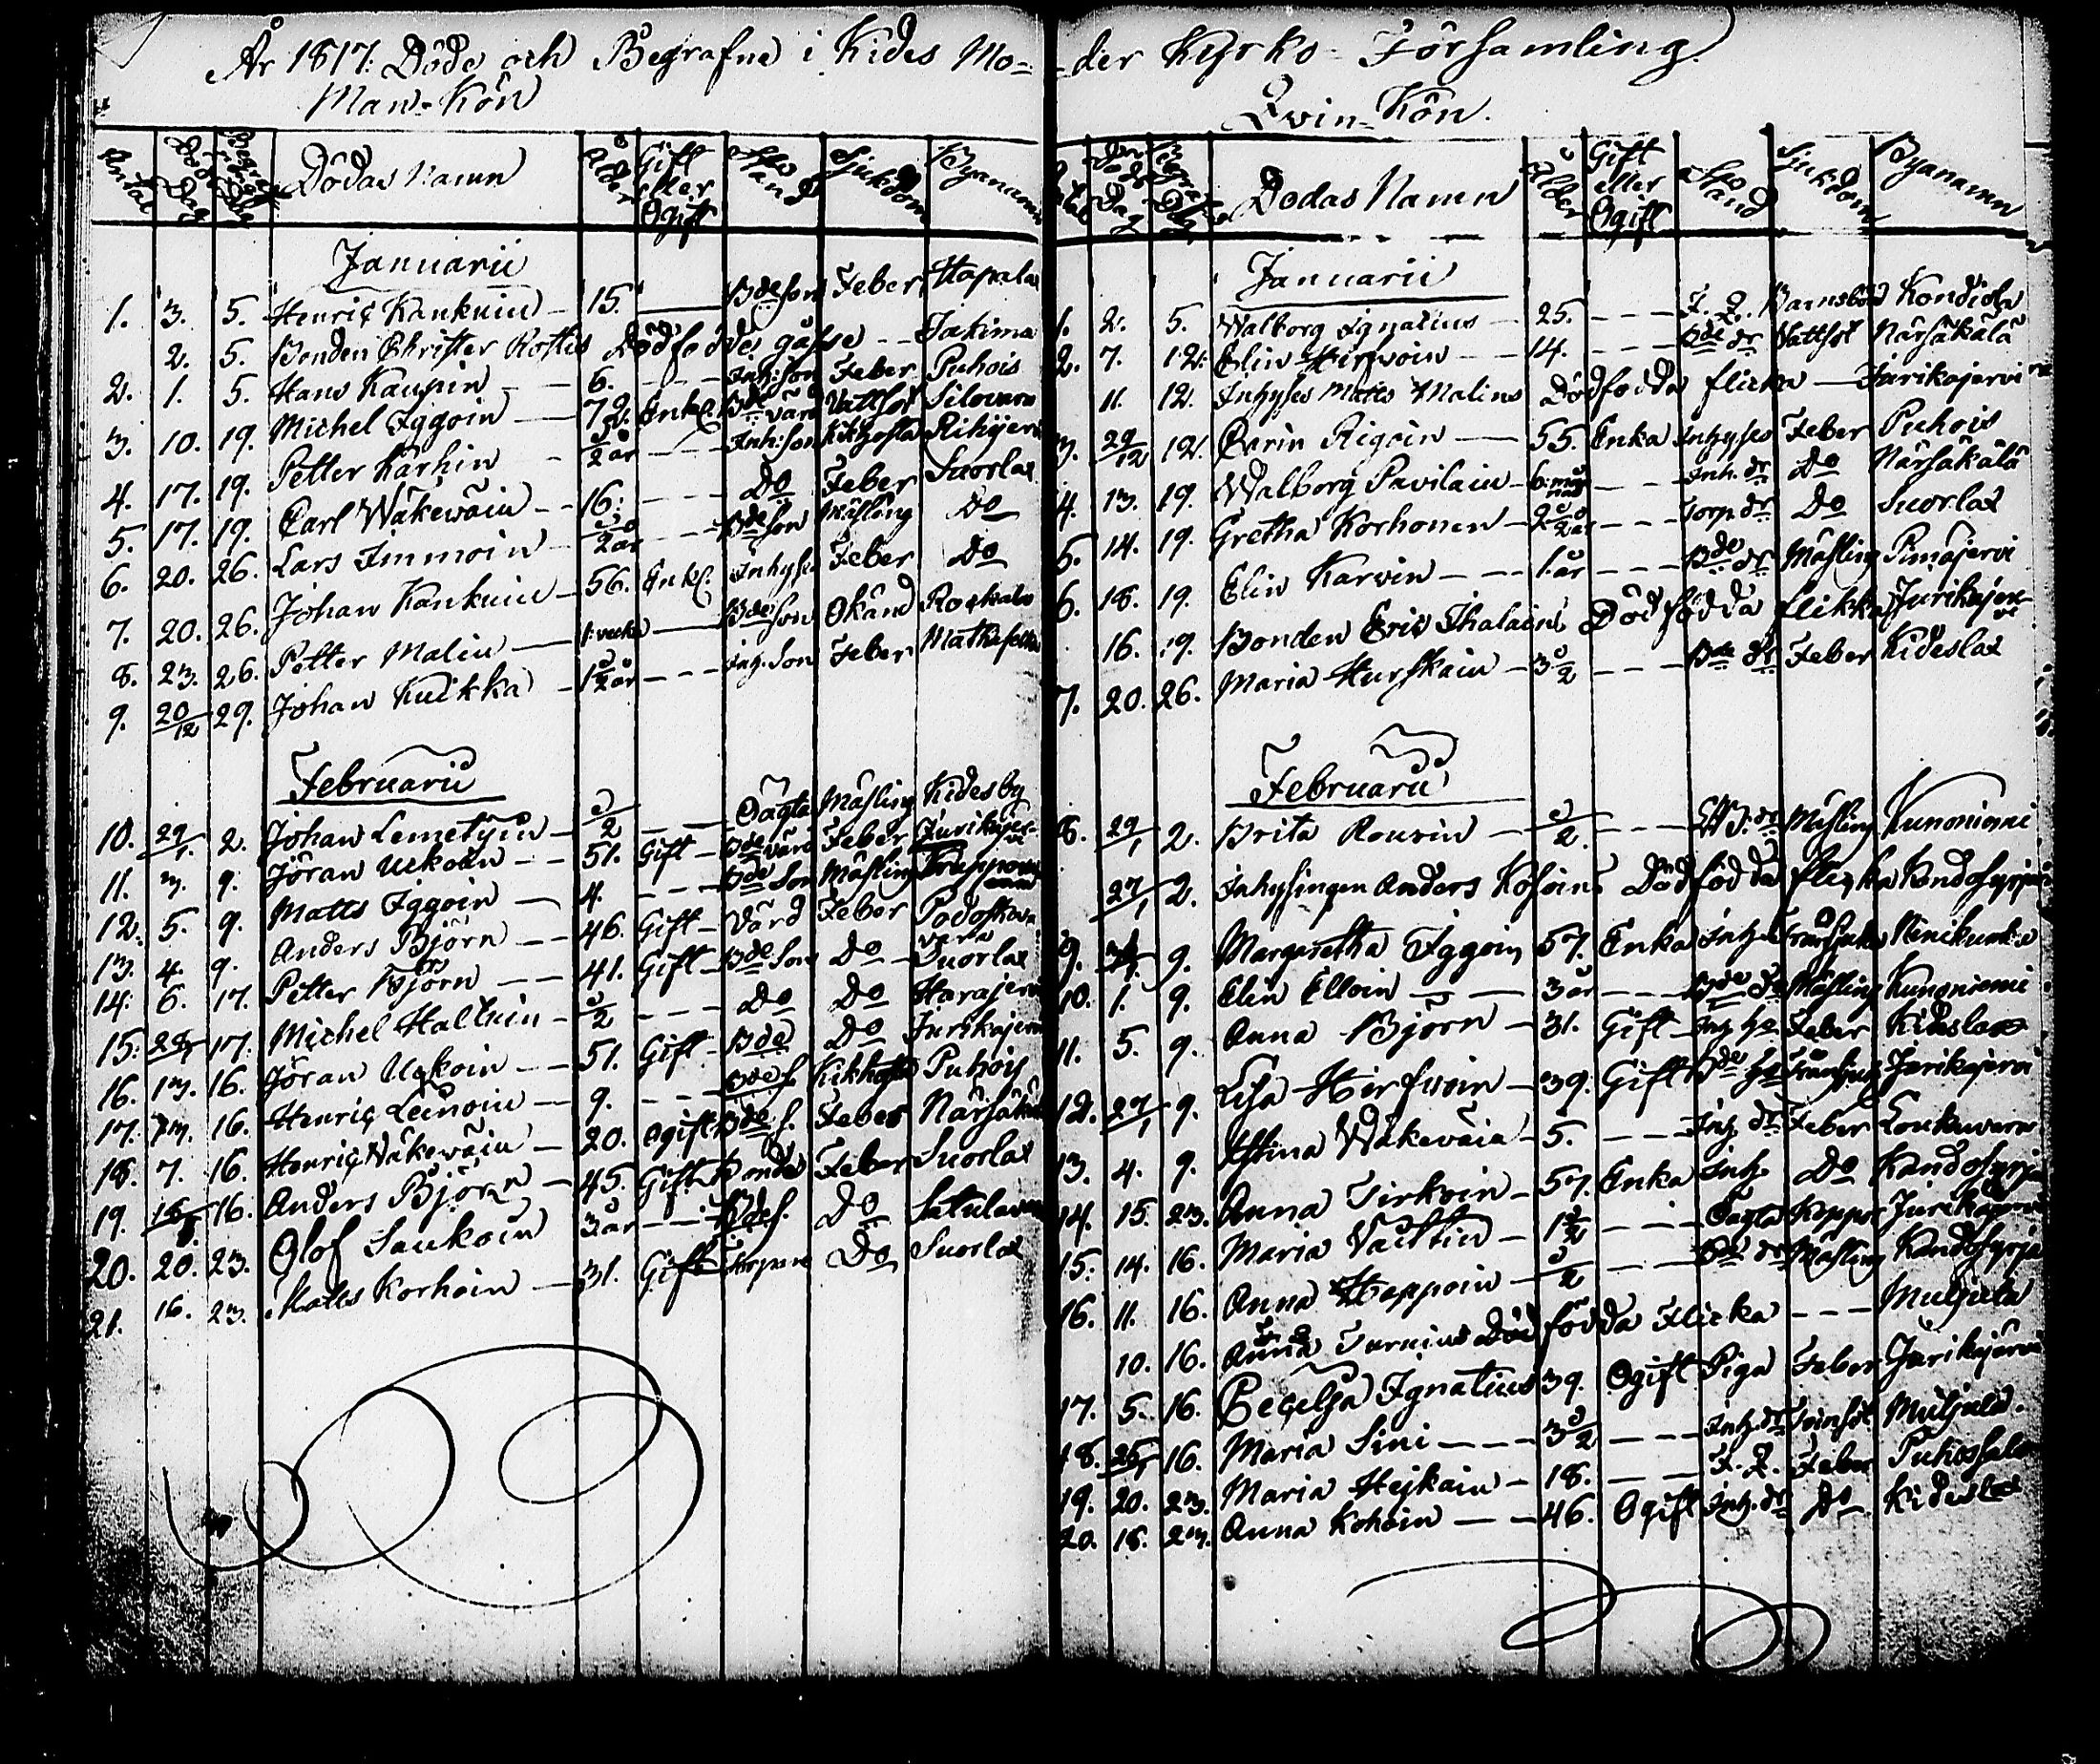 År 1817: Döde och Begrafne i Kides Mo-
Man-Kön
Antal Döde Dag Begrafnings Dag Dödas Namn Ålder Gift eller Ogift Stand Sjukdom Byanamn
Januarii
1. 3. 5. Henric Kankuin 15. Bde son Feber Hapala
2. 5. Bonden Christer Rostis Dödfödde gåsse Jakima
2. 1. 5. Hans Kaupin 6. Inh: son Feber Puhois
3. 10. 19. Michel Iggoin 72. Enkl. Bde värd Vattsot Silovara
4. 17. 19. Petter Karhin ½ år Inh: son Kikhosta
5. 17. 19. Carl Wäkewäin 16. Do Feber Suorlax
6. 20. 26. Lars Immoin ½ år Bde son Mäsling Do
7. 20. 26. Johan Kankuin 56. Enkl. Inhyse Feber Do
8. 23. 26. Petter Malin 1: vecka Bde son Okänd
9. 20/12 29. Johan Kuikka 1½ år Inh. Son Feber
Februarii
10. 29/1. 2. Johan Lemetyin ½ Oägta Mäsling Kidesby
11. 3. 9. Jöran Uckoin 51. Gift Bde värd Feber Jurikajervi
12. 5. 9. Matts Iggoin 4. Bde Son Mäsling
13. 4. 9. Anders Björn 46. Gift Värd Feber
14. 6. 17. Petter Björn 41. Gift Bde Son Do Suorlax
15. 17. Michel Haltuin ½ Do Do Harajervi
16. 13. 16. Jöran Uckoin 51. Gift Bde Do Jurikajervi
17. 16. Henric Leinoin 9. Bde s. Kikhosta Puhois
18. 7. 16. Henric Wäkewäin 20. Ogift Bde s. Feber Närsäkälä
19. 16. Anders Björn 45. Gift Bonde Feber Suorlax
20. 20. 23. Olof Saukoin 3 år Bde s. Do
21. 16. 23. Matts Korhoin 31. Gift Do Suorlax
-der Kyrko-Församling
Qvin-Kön.
Antal Den Döde Dag Dodas Namn Ålder Gift eller Ogift Stand Sjukdom Byanamn
Januarii
1. 2. 5. Walborg Ignatius 25. Barnsbörd
2. 7. 12. Elin Hirfwoin 14. Bde dr Vattsot Närsäkälä
11. 12. Inhyses Matts Malins Dödfödda flicka Jurikajervi
3. 29/12 12. Carin Rigoin 55. Enka Inhyses Feber Puhois
4. 13. 19. Walborg Pavilain 6: månad Inh. dr Do Närsäkälä
5. 14. 19. Gretha Korhonen Torp. dr Do Suorlax
6. 18. 19. Elin Karvin 1. år Bde dr Mäsling Pimäjervi
16. 19. Bonden Eric Ihalains Dödfödda flikka Jurikajervi
7. 20. 26. Maria Hurskain 3½ Bde dr Feber Kideslax
Februarii
8. 29/1 2. Brita Rouvin ½ Mäsling Kunoniemi
27/1 2. Inhysingen Anders Kosoins Dödfödda flicka
9. 9. Margaretha Iggoin 57. Enka Inh.
10. 1. 9. Elin Elloin 3 år Mäsling Kunoniemi
11. 5. 9. Anna Björn 31. Gift Feber Kideslax
12. 27/1 9. Lisa Hirfwoin 39. Gift Jurikajervi
13. 4. 9. Stina Wäkeväin 5. Inh. dr Feber
14. 15. 23. Anna Tirkoin 57. Enka Inh. Do
15. 14. 16. Maria Vaittin 1½ Oägta Koppor Jurikajervi
16. 11. 16. Anna Heppoin ½ Mäsling
10. 16. Anna Turnius Dödfödda Flicka Muljula
17. 5. 16. Ignatius 39. Ogift Piga Feber Jurikajervi
18. 16. Maria Sini 3½ Inh. dr Muljula
19. 20. 23. Maria Hejkain 18. Feber
20. 18. 23. Anna Kohoin 46. Ogift Inh. dr Do Kideslax